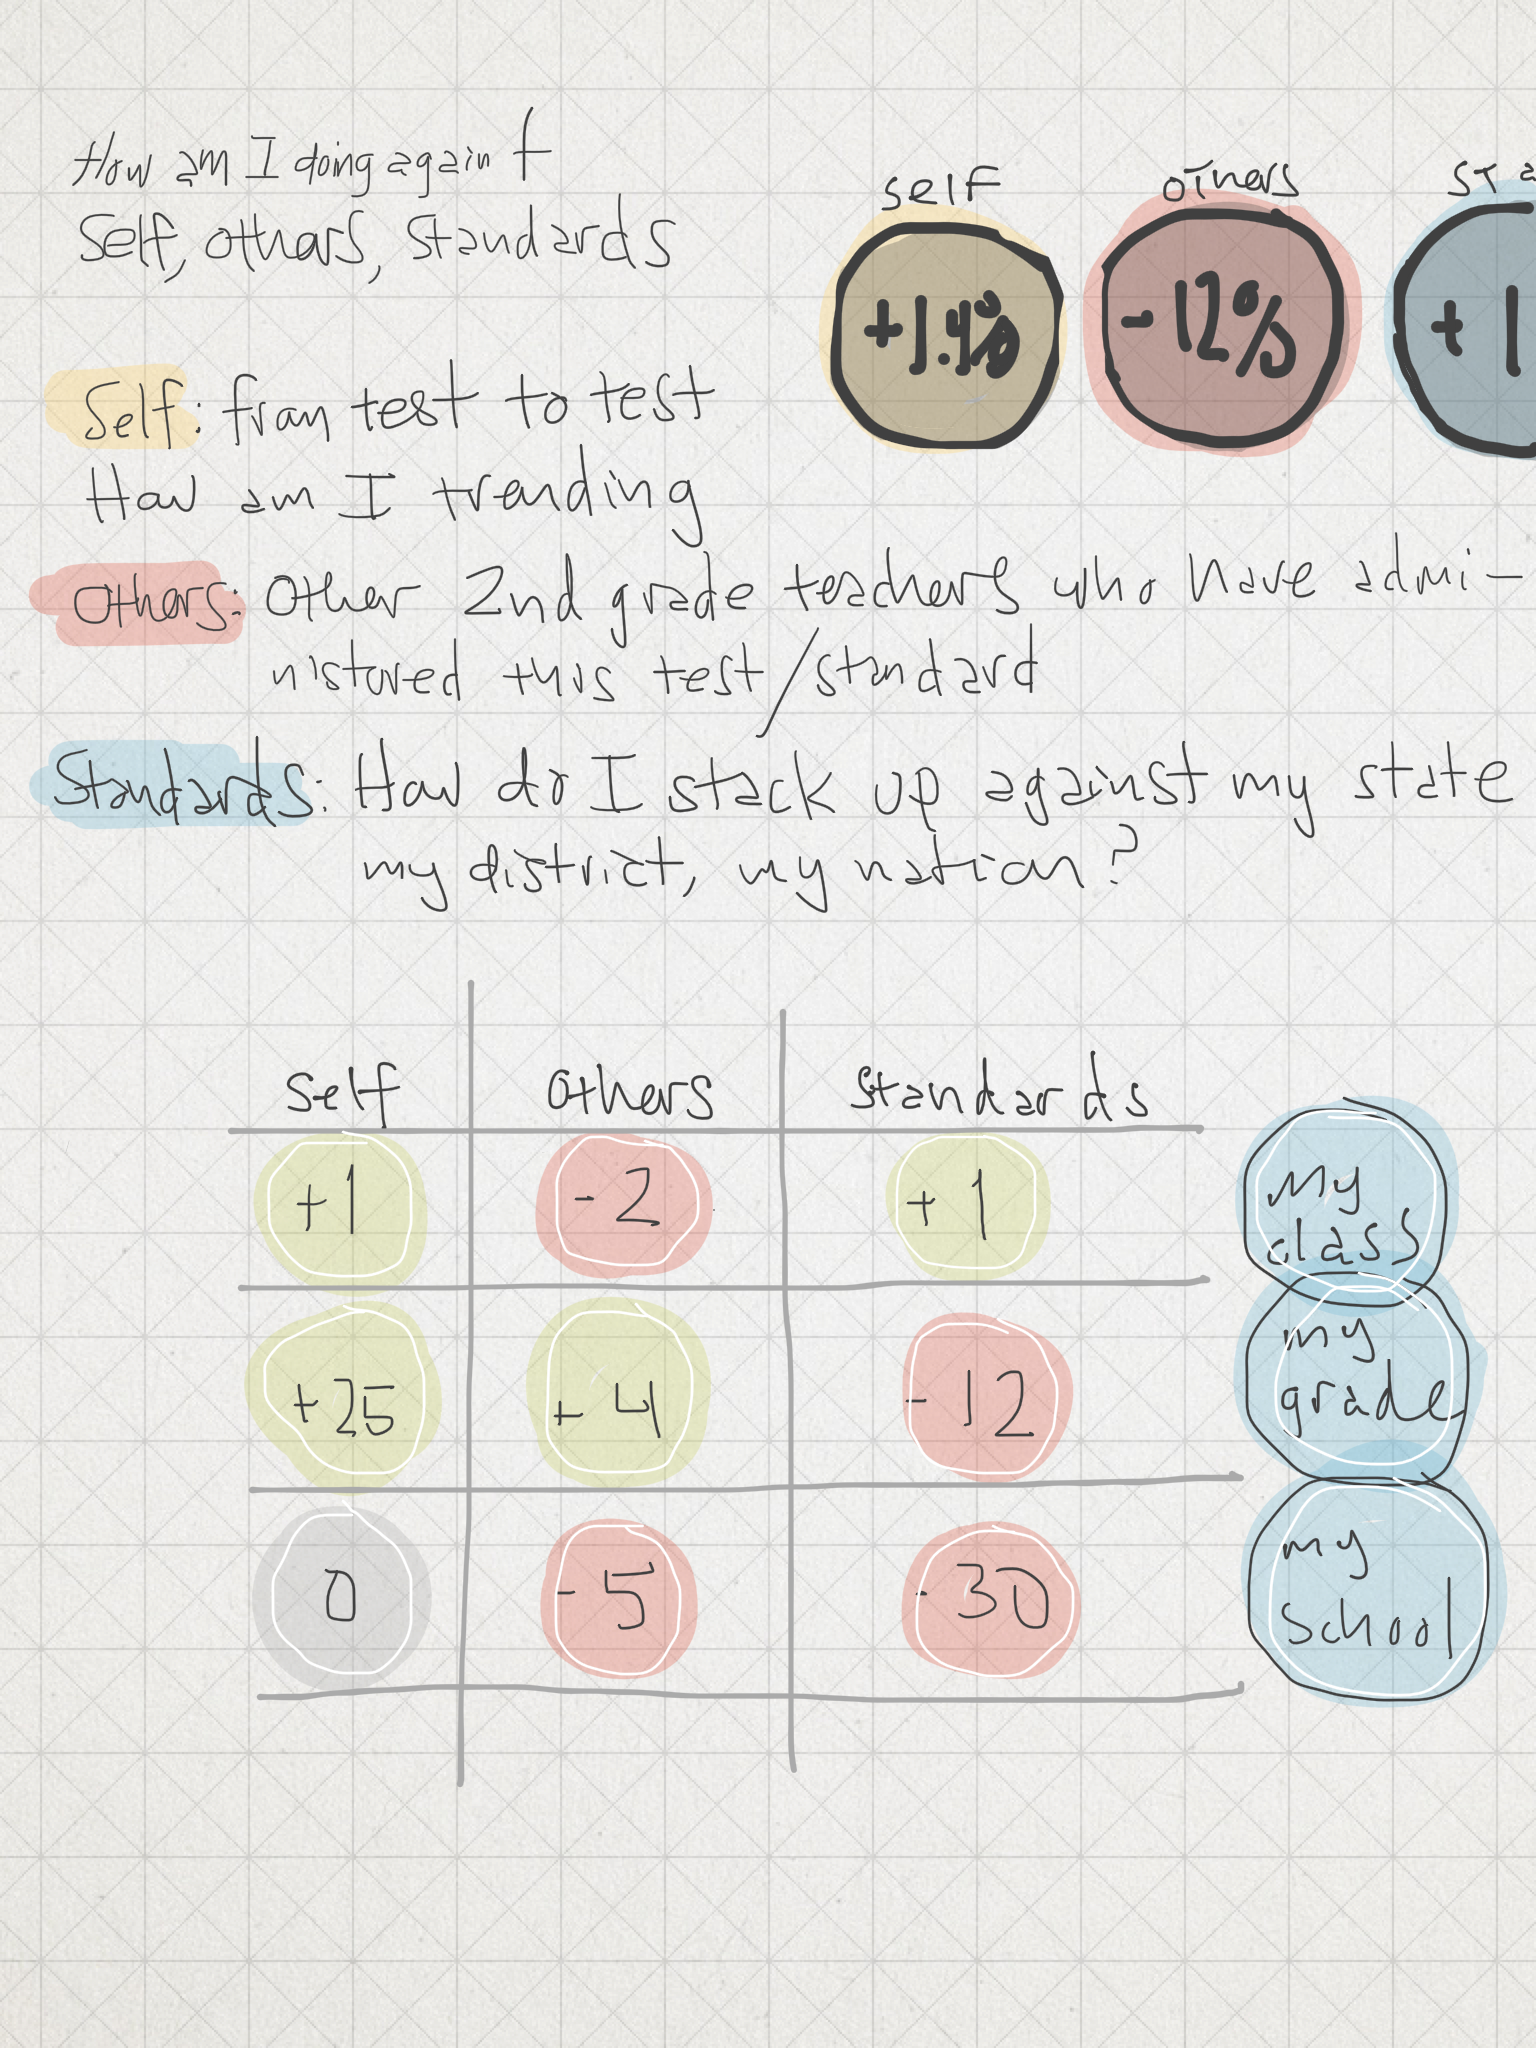 How am I doing again f
Self, others, standards
self
others
sta
+1.4%
-12%
+1
Self: from test to test
How am I trending
Others: Other 2nd grade teachers who have admi-
nistered this test/standard
Standards: How do I stack up against my state
my district, my nation?
Self Others Standards
+1 -2 +1 My class
+25 +4 -12 my grade
0 -5 -30 my school